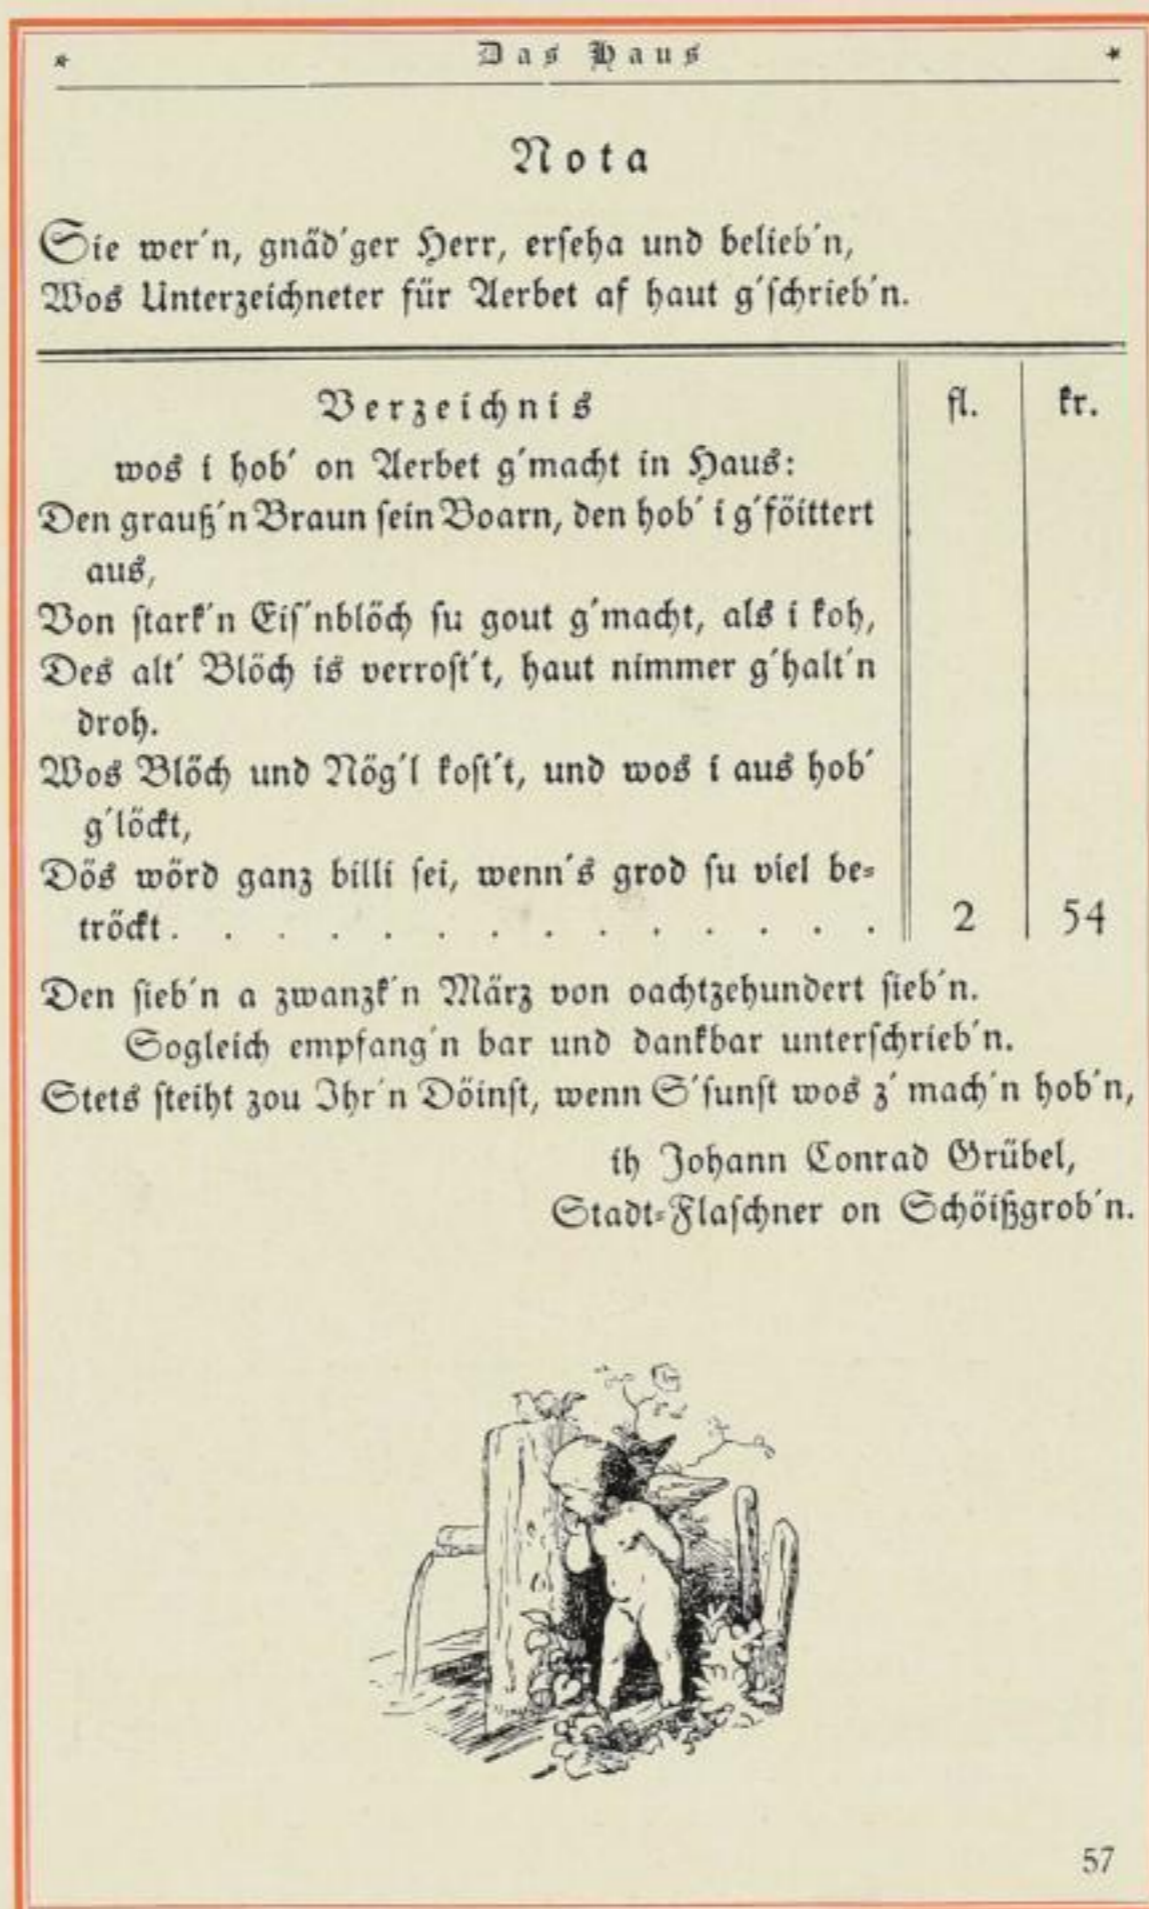 * Das Haus *
Nota
Sie wer'n, gnäd'ger Herr, erseha und belieb'n,
Wos Unterzeichneter für Aerbet af haut g'schrieb'n.
Verzeichnis fl. kr.
wos i hob' on Aerbet g'macht in Haus:
Den grauß'n Braun sein Boarn, den hob' i g'föittert
aus,
Von stark'n Eis'nblöch su gout g'macht, als i koh,
Des alt' Blöch is verrost't, haut nimmer g'halt'n
droh.
Wos Blöch und Nög'l kost't, und wos i aus hob'
g'löckt,
Dös wörd ganz billi sei, wenn's grod su viel be-
tröckt . . . . . . . . . . . . . . 2 54
Den sieb'n a zwanzk'n März von oachtzehundert sieb'n.
Sogleich empfang'n bar und dankbar unterschrieb'n.
Stets steiht zou Ihr'n Döinst, wenn S'sunst wos z' mach'n hob'n,
ih Johann Conrad Grübel,
Stadt-Flaschner on Schöißgrob'n.
57